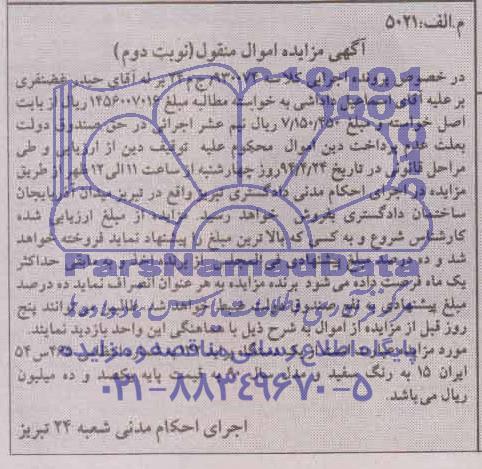 م.الف:۵۰۲۱
آگهی مزایده اموال منقول(نوبت دوم)
در خصوص پرونده اجرایی کلاسه ۹۳۰۱۷۴ له آقای حیدر غضنفری
بر علیه آقای اسماعیل داداشی به خواسته مطالبه مبلغ ۱۴۵۶۰۰۷۰۱۶ ریال از بابت
اصل خواسته و مبلغ ۷/۱۵۰/۴۵۲ ریال نیم عشر اجرائی در حق صندوق دولت
بعلت عدم پرداخت دین اموال محکوم علیه توقیف دین از ارزیابی و طی
مراحل قانونی در تاریخ ۹۴/۲/۲۴ روز چهارشنبه از ساعت ۱۱ الی ۱۲ ظهر از طریق
مزایده در اجرای احکام مدنی دادگستری تبریز واقع در تبریز میدان آذربایجان
ساختمان دادگستری بفروش خواهد رسید. مزایده از مبلغ ارزیابی شده
کارشناس شروع و به کسی که بالاترین مبلغ را پیشنهاد نماید فروخته خواهد
شد و ده درصد مبلغ پیشنهادی فی المجلس از برنده اخذ و به مابقی حداکثر
یک ماه فرصت داده می شود برنده مزایده به هر عنوان انصراف نماید ده درصد
مبلغ پیشنهادی به نفع صندوق دولت ضبط خواهد شد. طالبین می توانند پنج
روز قبل از مزایده از اموال به شرح ذیل با هماهنگی این واحد بازدید نمایند.
مورد مزایده عبارت است از
ایران ۱۵ به رنگ سفید و مدل سال به قیمت پایه یکصد و ده میلیون
ریال می باشد.
اجرای احکام مدنی شعبه ۲۴ تبریز
ParsNamadData
پایگاه اطلاع رسانی مناقصه و مزایده
۰۲۱-۸۸۳۴۹۶۷۰-۵